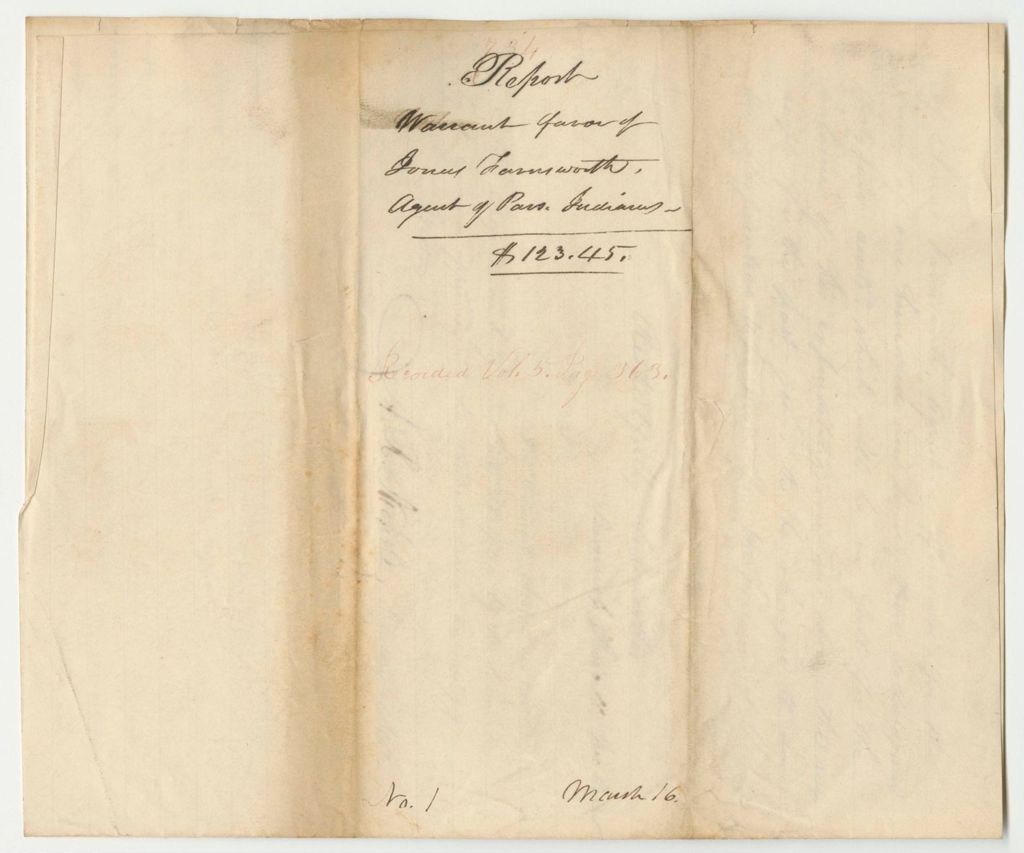 Report
Warrant favor of
Jonas Farnsworth,
Agent of Pass. Indians
$123.45.
Recorded Vol. 5. Page 363.
No. 1
March 16.